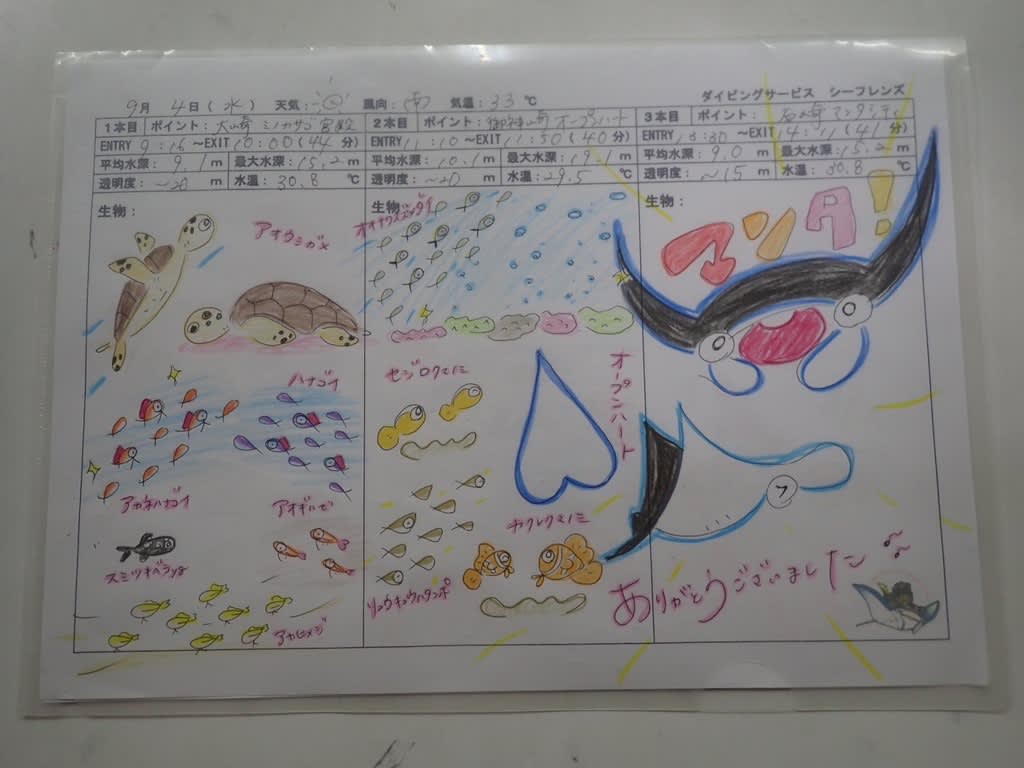 9月 4日(水) 天気: 風向:南 気温:33℃
ダイビングサービス シーフレンズ
1本目 ポイント:大崎 ミノカサゴ宮殿
ENTRY 9:16 ~EXIT 10:00(44分)
平均水深:9.1m 最大水深:15.2m
透明度:~20m 水温:30.8℃
2本目 ポイント:御神崎 オープンハート
ENTRY 11:10 ~EXIT 11:50(40分)
平均水深:10.1m 最大水深:19.1m
透明度:~20m 水温:29.5℃
3本目 ポイント:石崎 マンタシティ
ENTRY 13:30 ~EXIT 14:11(41分)
平均水深:9.0m 最大水深:15.2m
透明度:~15m 水温:30.8℃
生物:
アオウミガメ
ハナゴイ
アカネハナゴイ
アオギハゼ
スミツキベラyg
アカヒメジ
生物:
セジロクマノミ
オープンハート
カクレクマノミ
リュウキュウハタンポ
生物:
マンタ!
ありがとうございました